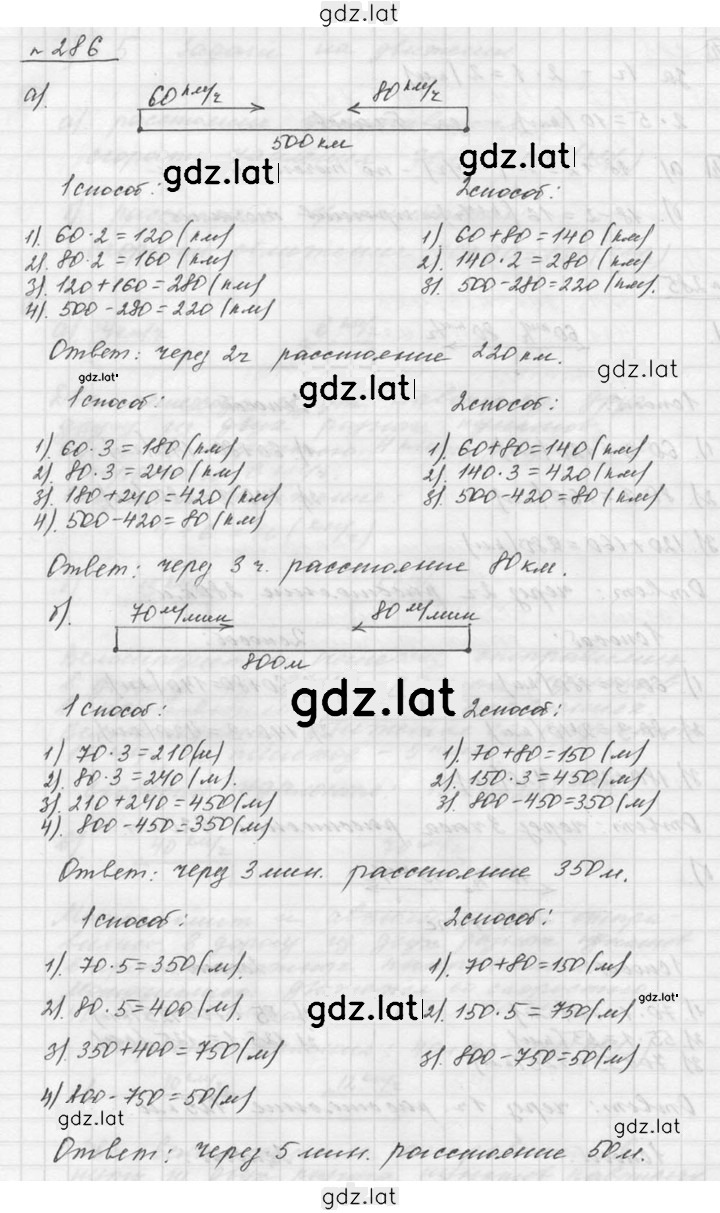 gdz.lat
№286
а). 60 км/ч 80 км/ч
500 км
gdz.lat gdz.lat
1 способ: 2 способ:
1). 60·2=120 (км) 1) 60+80=140 (км)
2). 80·2=160 (км) 2). 140·2=280 (км)
3). 120+160=280 (км) 3). 500-280=220 (км).
4). 500-280=220 (км)
Ответ: через 2ч расстояние 220 км.
gdz.lat gdz.lat gdz.lat
1 способ: 2 способ:
1) 60·3=180 (км) 1). 60+80=140 (км)
2) 80·3=240 (км) 2). 140·3=420 (км)
3). 180+240=420 (км) 3). 500-420=80 (км)
4). 500-420=80 (км)
Ответ: через 3 ч. расстояние 80 км.
б). 70 м/мин 80 м/мин
800 м
gdz.lat
1 способ: 2 способ:
1) 70·3=210 (м) 1). 70+80=150 (м)
2). 80·3=240 (м). 2). 150·3=450 (м)
3). 210+240=450 (м) 3). 800-450=350 (м)
4). 800-450=350 (м)
Ответ: через 3 мин. расстояние 350 м.
1 способ: 2 способ:
1). 70·5=350 (м). 1). 70+80=150 (м)
2). 80·5=400 (м) gdz.lat 2). 150·5=750 (м) gdz.lat
3). 350+400=750 (м) 3). 800-750=50 (м)
4) 800-750=50 (м)
gdz.lat gdz.lat
Ответ: через 5 мин. расстояние 50 м.
gdz.lat